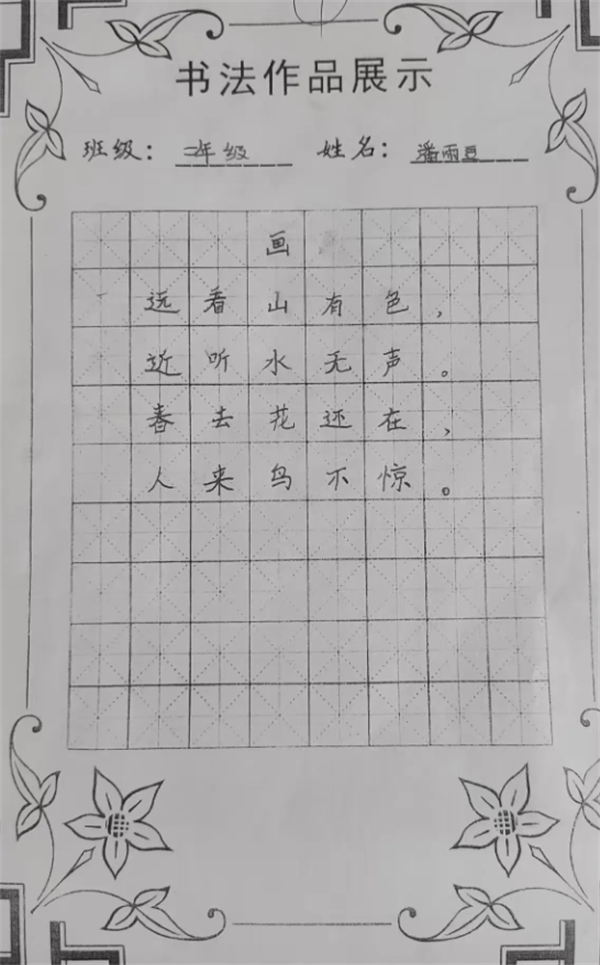 书法作品展示
班级：二年级 姓名：潘雨豆
画
远看山有色，
近听水无声。
春去花还在，
人来鸟不惊。